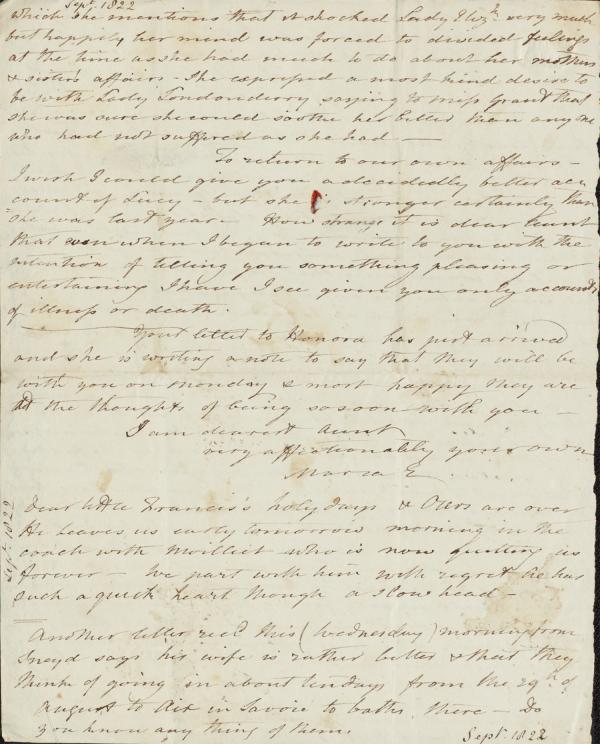 Sept. 1822
which she mentions that it shocked Lady Elizth. very much
but happily her mind was forced to divided feelings
at the time as she had much to do about her mothers
& sisters affairs - She expressed a most kind desire to
be with Lady Londonderry saying to Miss Grant that
she was sure she could soothe her better than any one
who had not suffered as she had —
To return to our own affairs -
I wish I could give you a decidedly better ac
count of Lucy - but she is stronger certainly than
she was last year. How strange it is dear Aunt
that even when I began to write to you with the
intention of telling you something pleasing or
entertaining I have I see given you only accounts
of illness or death.
Your letter to Honora has just arrived
and she is writing a note to say that they will be
with you on Monday & most happy they are
at the thoughts of being so soon with you —
I am dearest Aunt
very affectionately yours own
Maria E
Dear little Francis's holydays & ours are over
He leaves us early tomorrow morning in the
coach with Moilliet who is now quitting us
forever — We part with him with regret he has
such a quick heart though a slow head -
Another letter recd. this (Wednesday) morning from
Sneyd says his wife is rather better & that they
think of going in about ten days from the 29th of
August to Aix in Savoie to baths there — Do
you know any thing of them
Sept. 1822
Sept. 1822